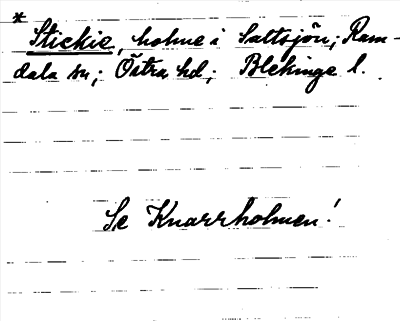 * Stickie, holme i Saltsjön; Ram-
dala sn; Östra hd; Blekinge l.
Se Knarrholmen!